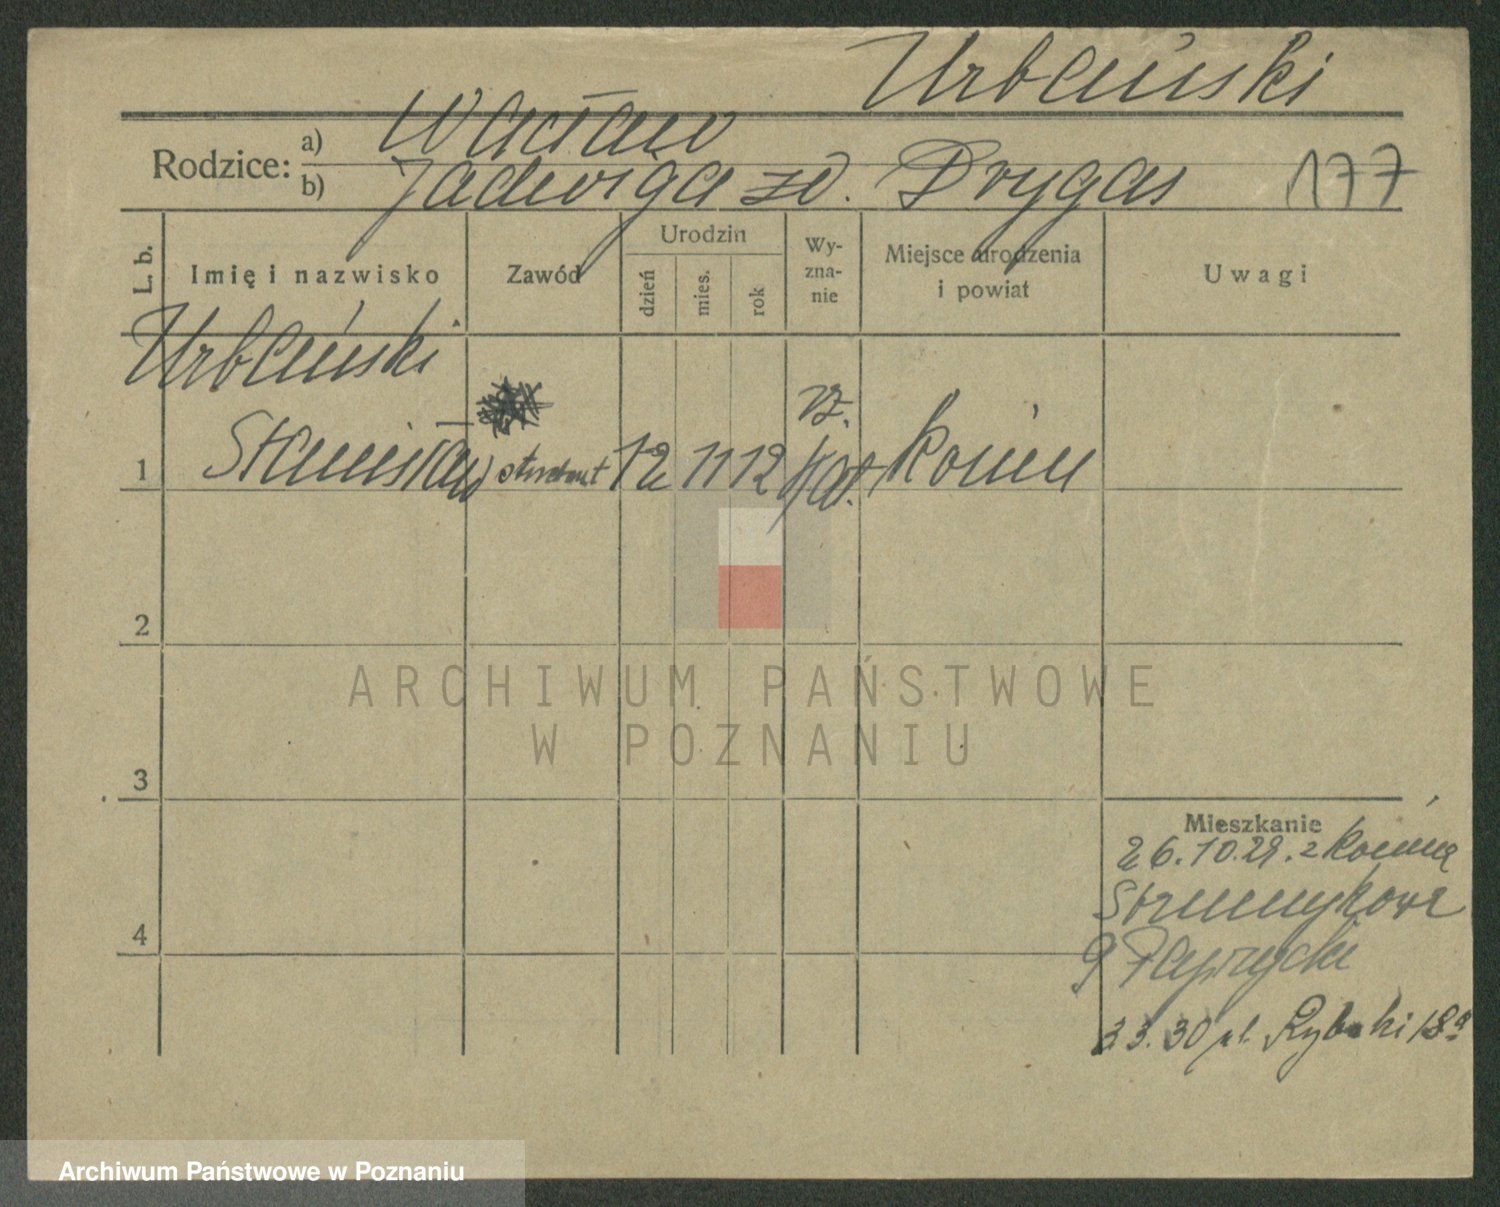 Urbański
Rodzice: a) Wacław
b) Jadwiga zd. Drygas 177
L. b. Imię i nazwisko Zawód Urodzin dzień mies. rok Wy-zna-nie Miejsce urodzenia i powiat Uwagi
Urbański
1 Stanisław student 12 11 12 rz. kat. Konin
2
3
4
Mieszkanie
26.10.29. z Konina
Strumykowa
9
3 3. 30 pl. Rybaki 18a
ARCHIWUM PAŃSTWOWE
W POZNANIU
Archiwum Państwowe w Poznaniu